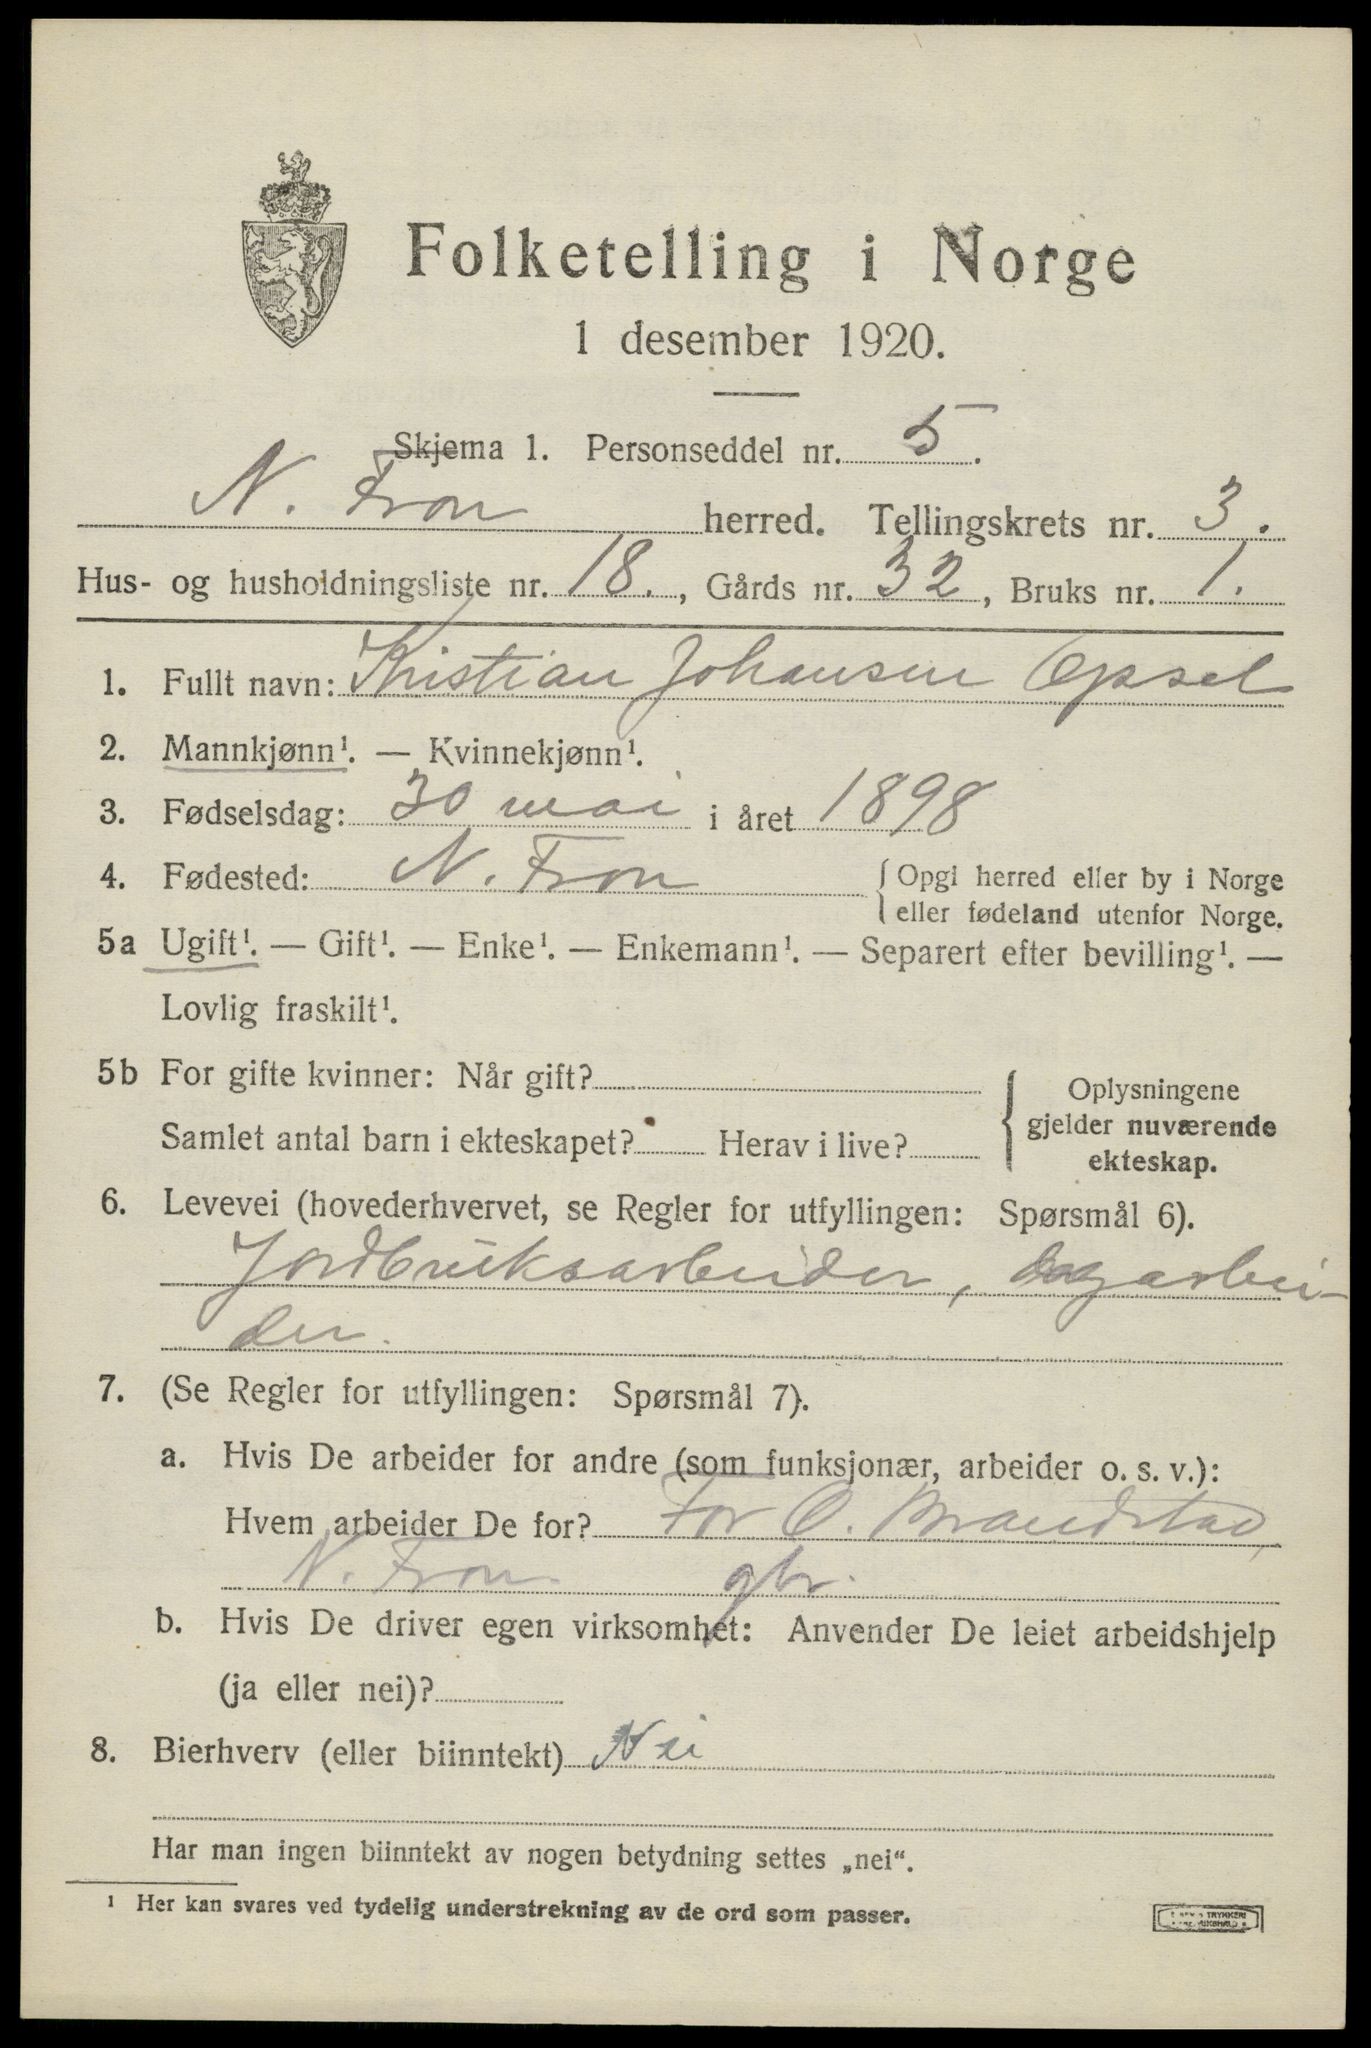 Folketelling i Norge
1 desember 1920.
Skjema 1. Personseddel nr. 5.
N. Fron herred. Tellingskrets nr. 3.
Hus- og husholdningsliste nr. 18., Gårds nr. 32, Bruks nr. 1.
1. Fullt navn: Kristian Johansen Opsal
2. Mannkjønn¹. — Kvinnekjønn¹.
3. Fødselsdag: 30 mai i året 1898
4. Fødested: N. Fron { Opgi herred eller by i Norge
eller fødeland utenfor Norge.
5a Ugift¹. — Gift¹. — Enke¹. — Enkemann¹. — Separert efter bevilling¹. —
Lovlig fraskilt¹.
5b For gifte kvinner: Når gift?
Samlet antal barn i ekteskapet? Herav i live?
{ Oplysningene
gjelder nuværende
ekteskap.
6. Levevei (hovederhvervet, se Regler for utfyllingen: Spørsmål 6).
Jordbruksarbeider, dagarbei-
der.
7. (Se Regler for utfyllingen: Spørsmål 7).
a. Hvis De arbeider for andre (som funksjonær, arbeider o. s. v.):
Hvem arbeider De for? For O. Brandstad,
N. Fron. gbr.
b. Hvis De driver egen virksomhet: Anvender De leiet arbeidshjelp
(ja eller nei)?
8. Bierhverv (eller biinntekt) Nei
Har man ingen biinntekt av nogen betydning settes „nei“.
¹ Her kan svares ved tydelig understrekning av de ord som passer.